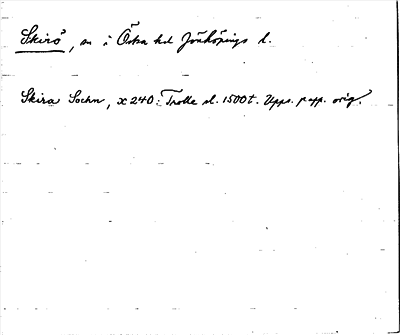 Skirö, sn i Östra hd Jönköpings l.
Skira Sochn, x 240: Trolle sl. 1500t. Upps. papp. orig.